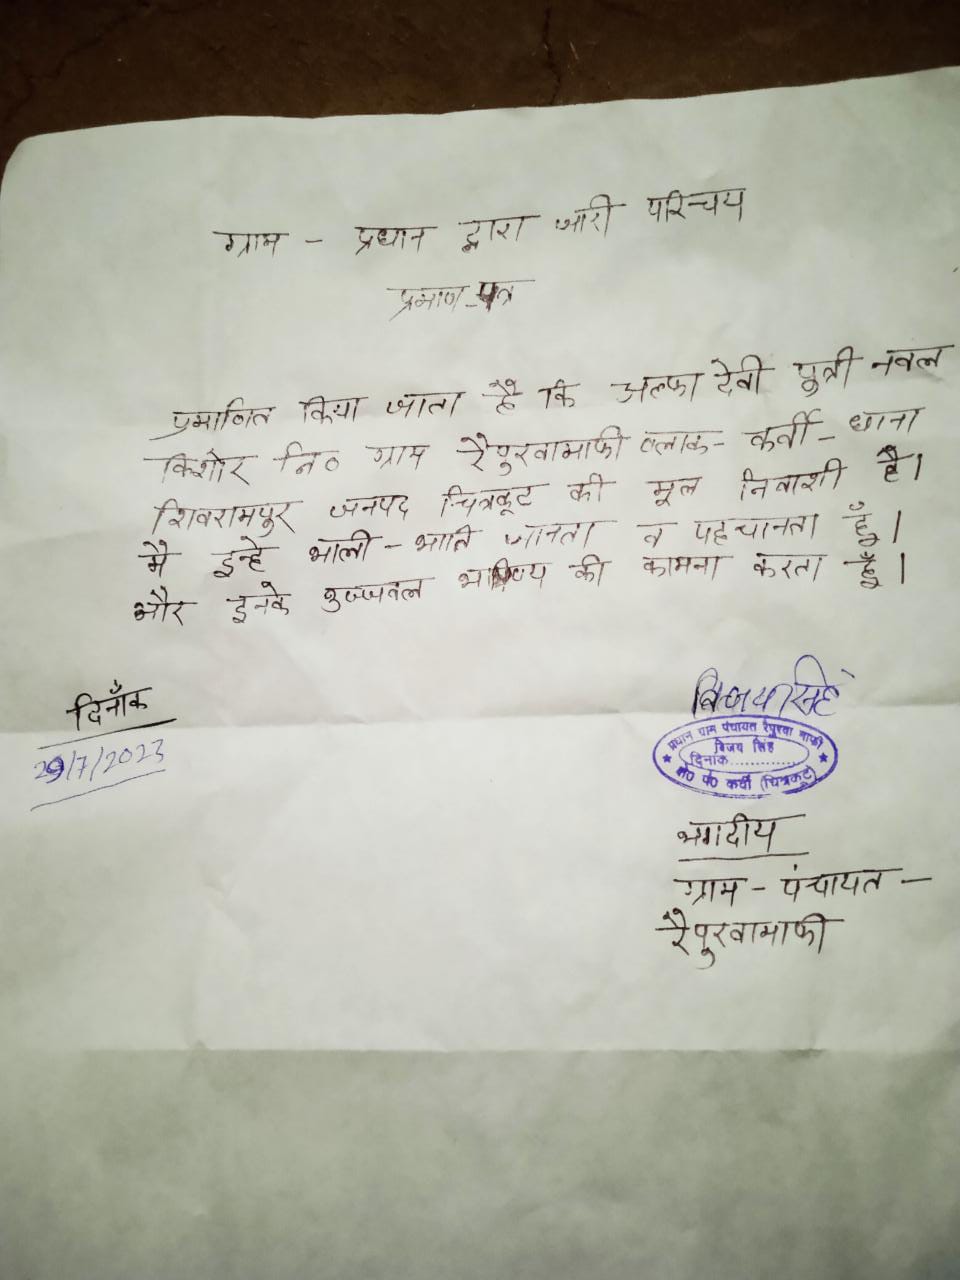 ग्राम - प्रधान द्वारा जारी परिचय
प्रमाण-पत्र
प्रमाणित किया जाता है कि अल्फा देवी पुत्री नवल
किशोर नि० ग्राम रैपुरवामाफी ब्लाक- कर्वी - थाना
शिवरामपुर जनपद चित्रकूट की मूल निवाशी है।
मै इन्हे भाली-भाति जानता व पहचानता हूँ।
और इनके युज्जवल भविष्य की कामना करता हूँ।
दिनाँक
29/7/2023
विजय सिंह
प्रधान ग्राम पंचायत रैपुरवा माफी
विजय सिंह
दिनांक............
कर्वी (चित्रकूट)
भगदीय
ग्राम - पंचायत -
रैपुरवामाफी